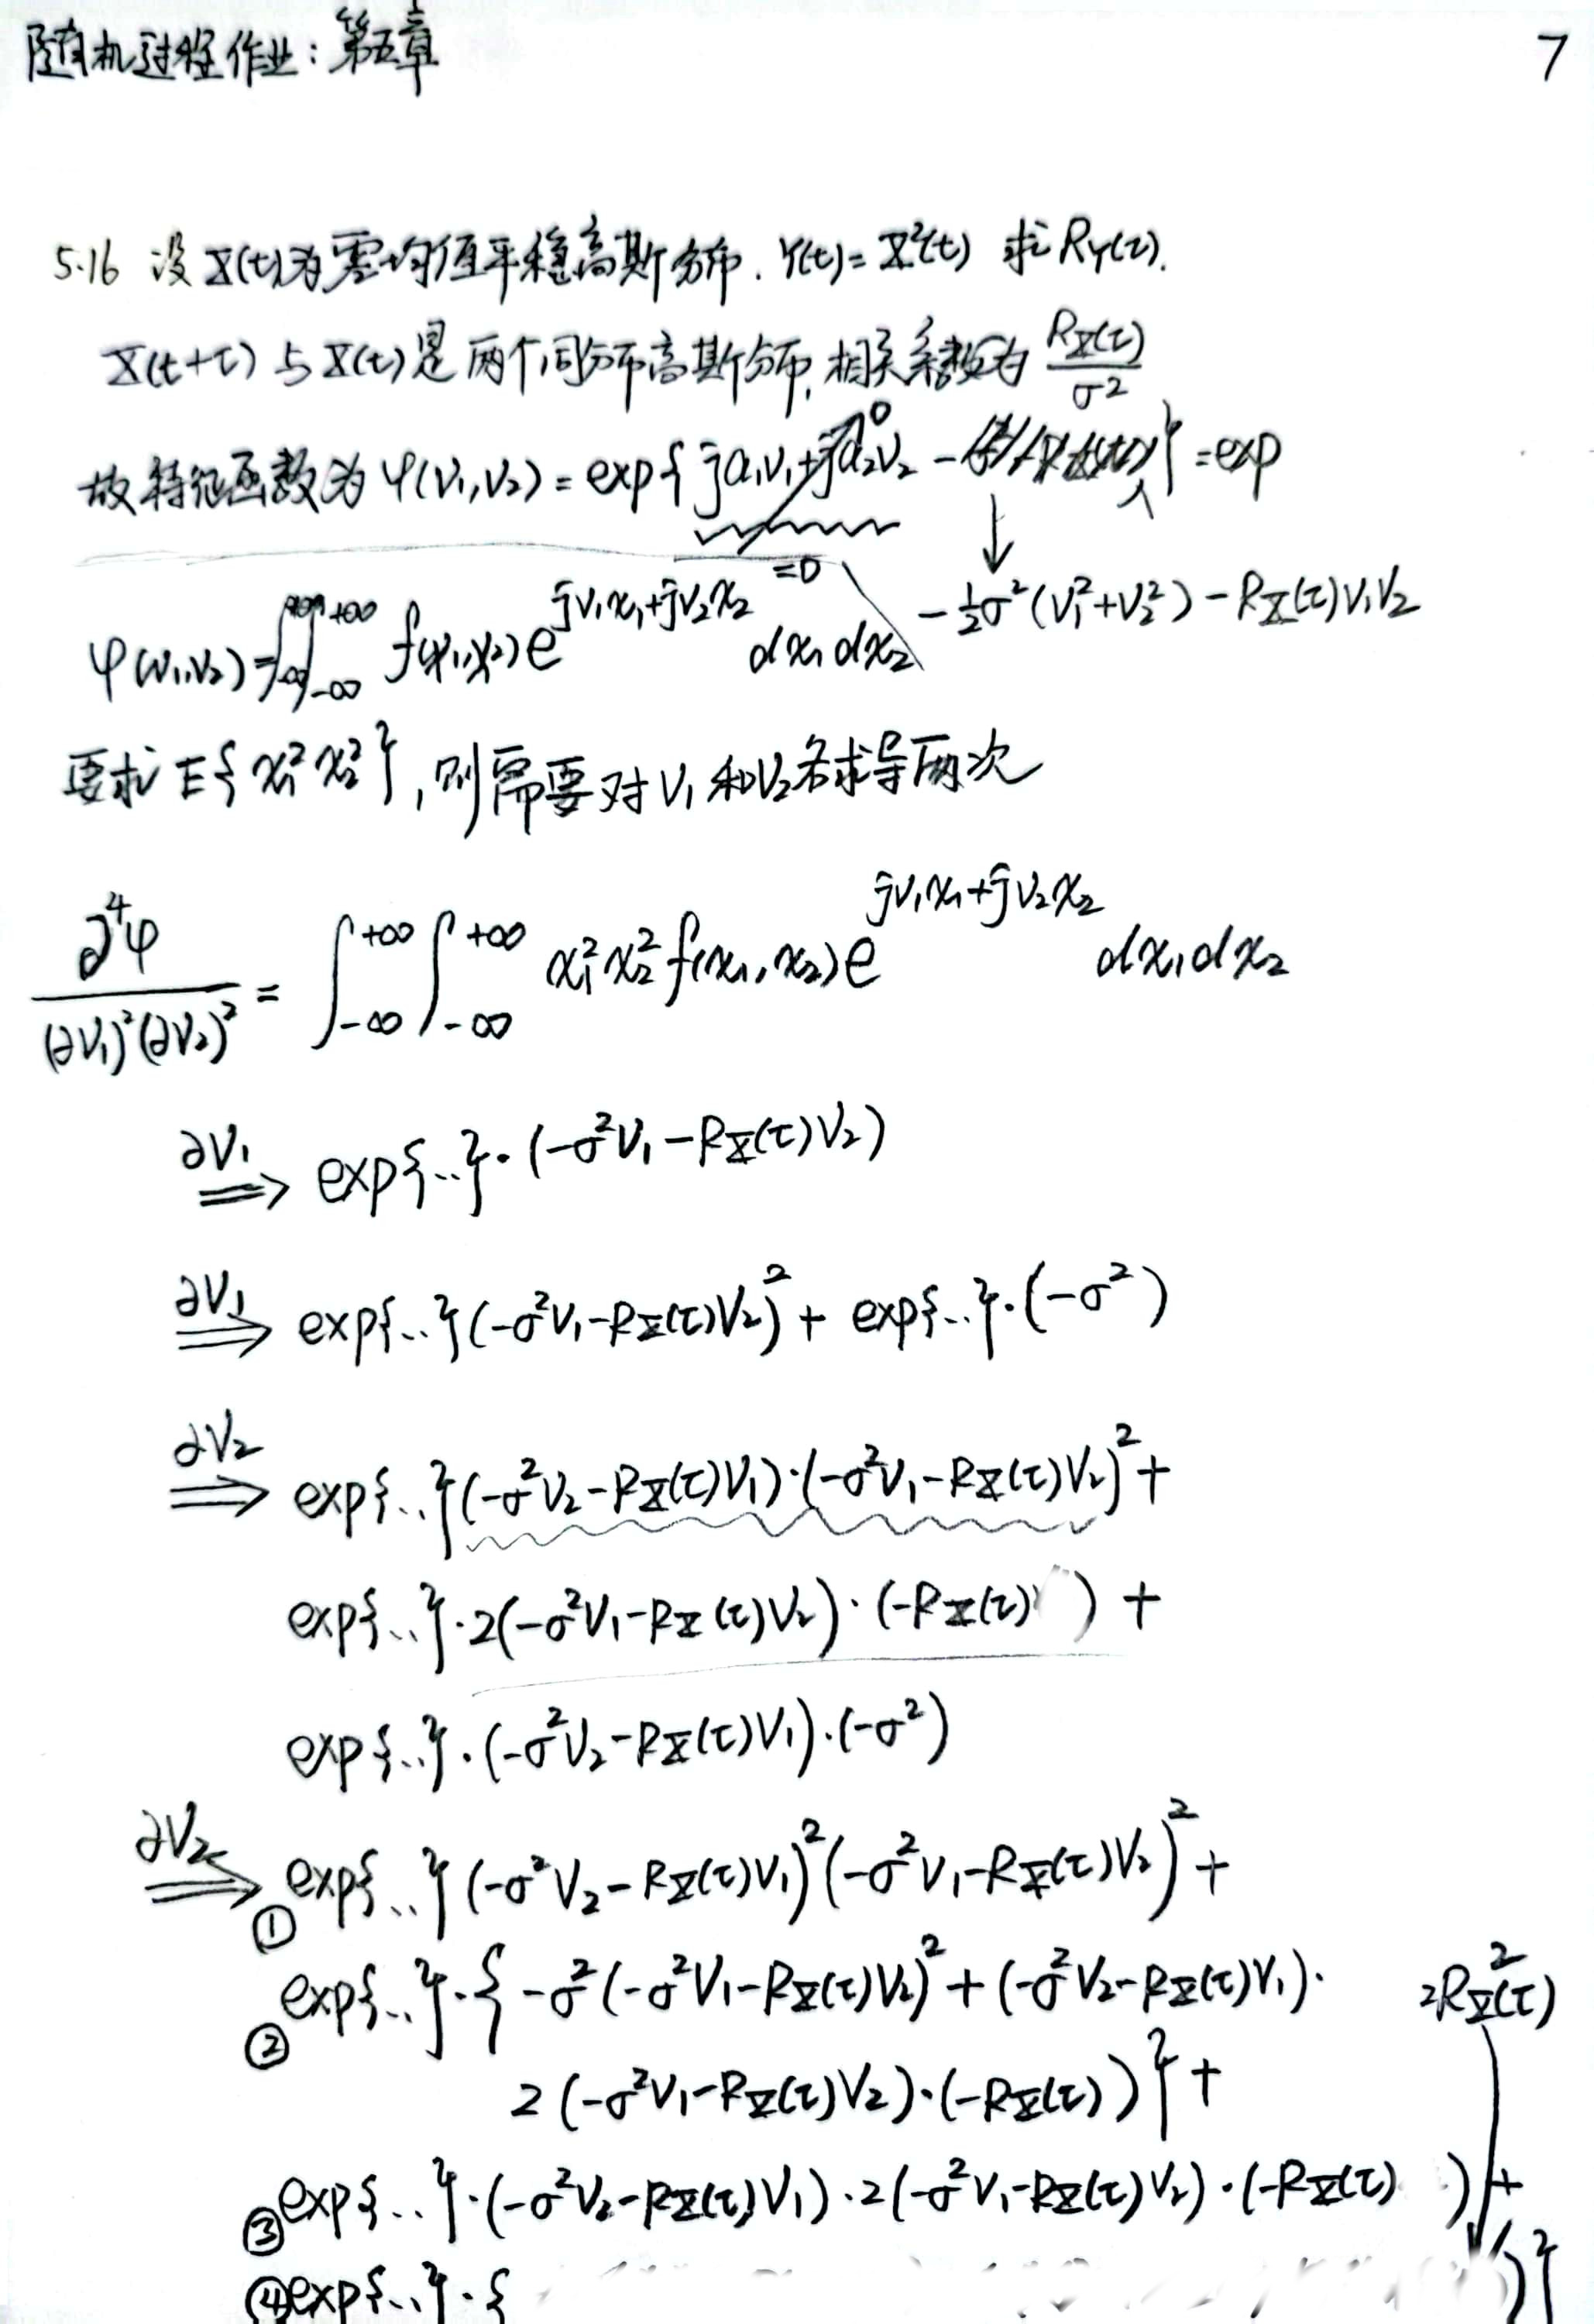 随机过程作业：第五章 7
5.16 设X(t)为零均值平稳高斯分布. Y(t)=X²(t) 求R_Y(τ).
X(t+τ)与X(t)是两个同分布高斯分布,相关系数为 R_X(τ)/σ²
故特征函数为 φ(V₁,V₂)=exp{ja₁V₁+ja₂V₂ - } =exp
0
=0
φ(V₁,V₂)=∫∫_{-∞}^{+∞} f(x₁,x₂)e^{jV₁x₁+jV₂x₂} dx₁dx₂
↓ -½σ²(V₁²+V₂²)-R_X(τ)V₁V₂
要求E{x₁²x₂²},则需要对V₁和V₂各求导两次
∂⁴φ/(∂V₁)²(∂V₂)² = ∫_{-∞}^{+∞}∫_{-∞}^{+∞} x₁²x₂²f(x₁,x₂)e^{jV₁x₁+jV₂x₂} dx₁dx₂
∂V₁ ⇒ exp{..}·(-σ²V₁-R_X(τ)V₂)
∂V₁ ⇒ exp{..}(-σ²V₁-R_X(τ)V₂)²+exp{..}·(-σ²)
∂V₂ ⇒ exp{..}(-σ²V₂-R_X(τ)V₁)·(-σ²V₁-R_X(τ)V₂)²+
exp{..}·2(-σ²V₁-R_X(τ)V₂)·(-R_X(τ))+
exp{..}·(-σ²V₂-R_X(τ)V₁)·(-σ²)
∂V₂ ⇒ ①exp{..}(-σ²V₂-R_X(τ)V₁)²(-σ²V₁-R_X(τ)V₂)²+
②exp{..}·{-σ²(-σ²V₁-R_X(τ)V₂)²+(-σ²V₂-R_X(τ)V₁)·
2(-σ²V₁-R_X(τ)V₂)·(-R_X(τ))}+
2R_X²(τ)
③exp{..}·(-σ²V₂-R_X(τ)V₁)·2(-σ²V₁-R_X(τ)V₂)·(-R_X(τ))+
④exp{..}·{ )}